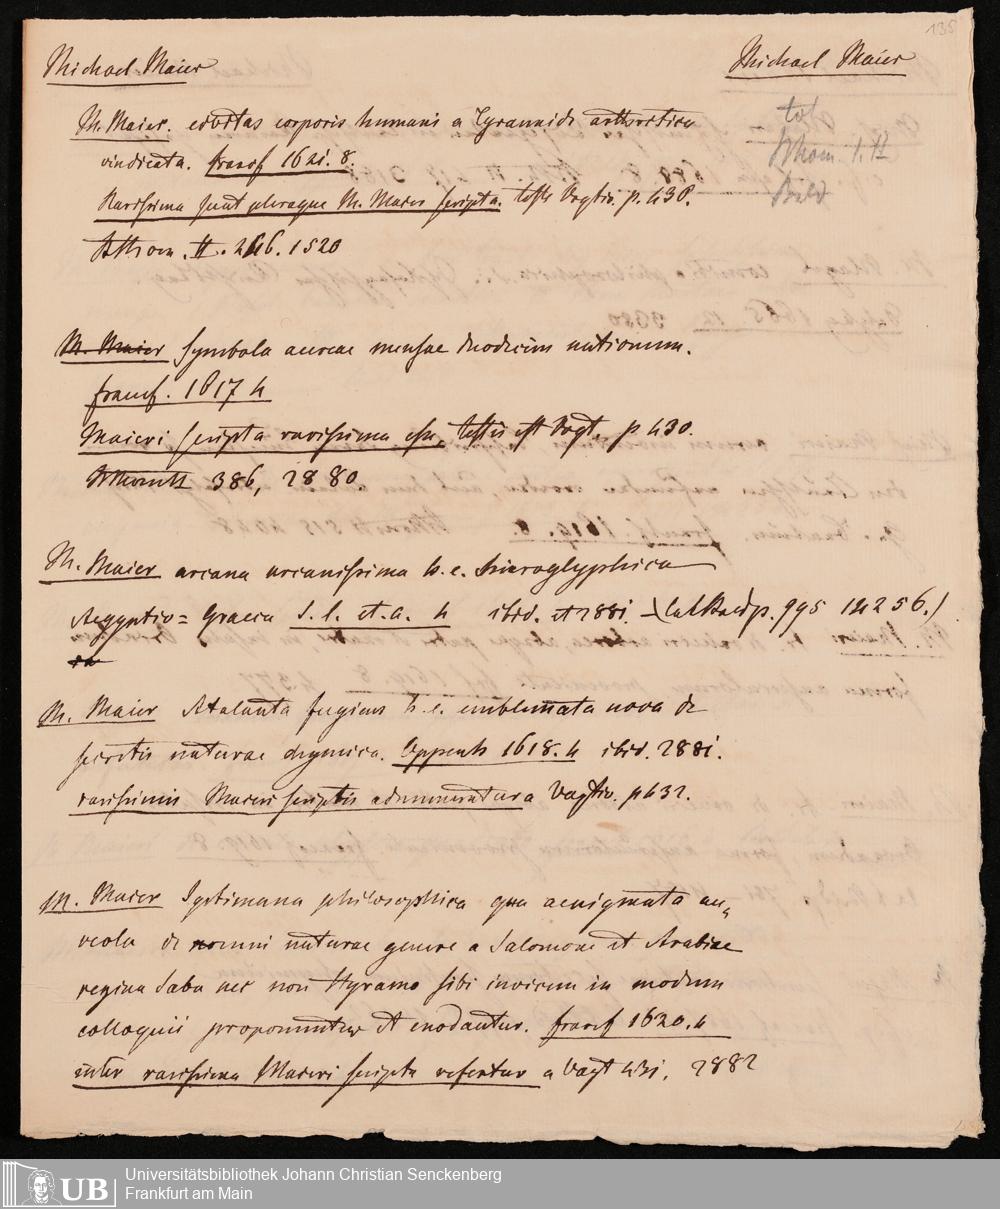 135
Michael Maier
Michael Maier
M. Maier. civitas corporis humani a Tyrannide arthritica
vindicata. francf 1621. 8.
Rarissima sunt pleraque M. Maieri scripta. teste Vogtio. p. 430.
II. 246. 1520
tot
Thom. I. II
M. Maier Symbola aureae mensae duodecim nationum.
francf. 1617 4
Maieri scripta rarissima esse, testis est Vogt. p 430.
386, 2880
M. Maier arcana arcanissima h. e. hieroglyphica
Aegyptio = Graeca S. l. et. a. 4 ibid. et 2881. p. 995 14256.)
M. Maier Atalanta fugiens h. e. emblemata nova de
secretis naturae chymica. Oppenh 1618. 4 ibid. 2881.
rarissimis Maieri scriptis adnumeratur a Vogtio. p 432.
M. Maier Septimana philosophica qua aenigmata au„
reola de omni naturae genere a Salomone et Arabiae
regina Saba nec non Hyramo sibi invicem in modum
colloquii proponuntur et enodantur. francf 1620. 4
inter rarissima Maieri scripta refertur a Vogt 431. 2882
UB
Universitätsbibliothek Johann Christian Senckenberg
Frankfurt am Main